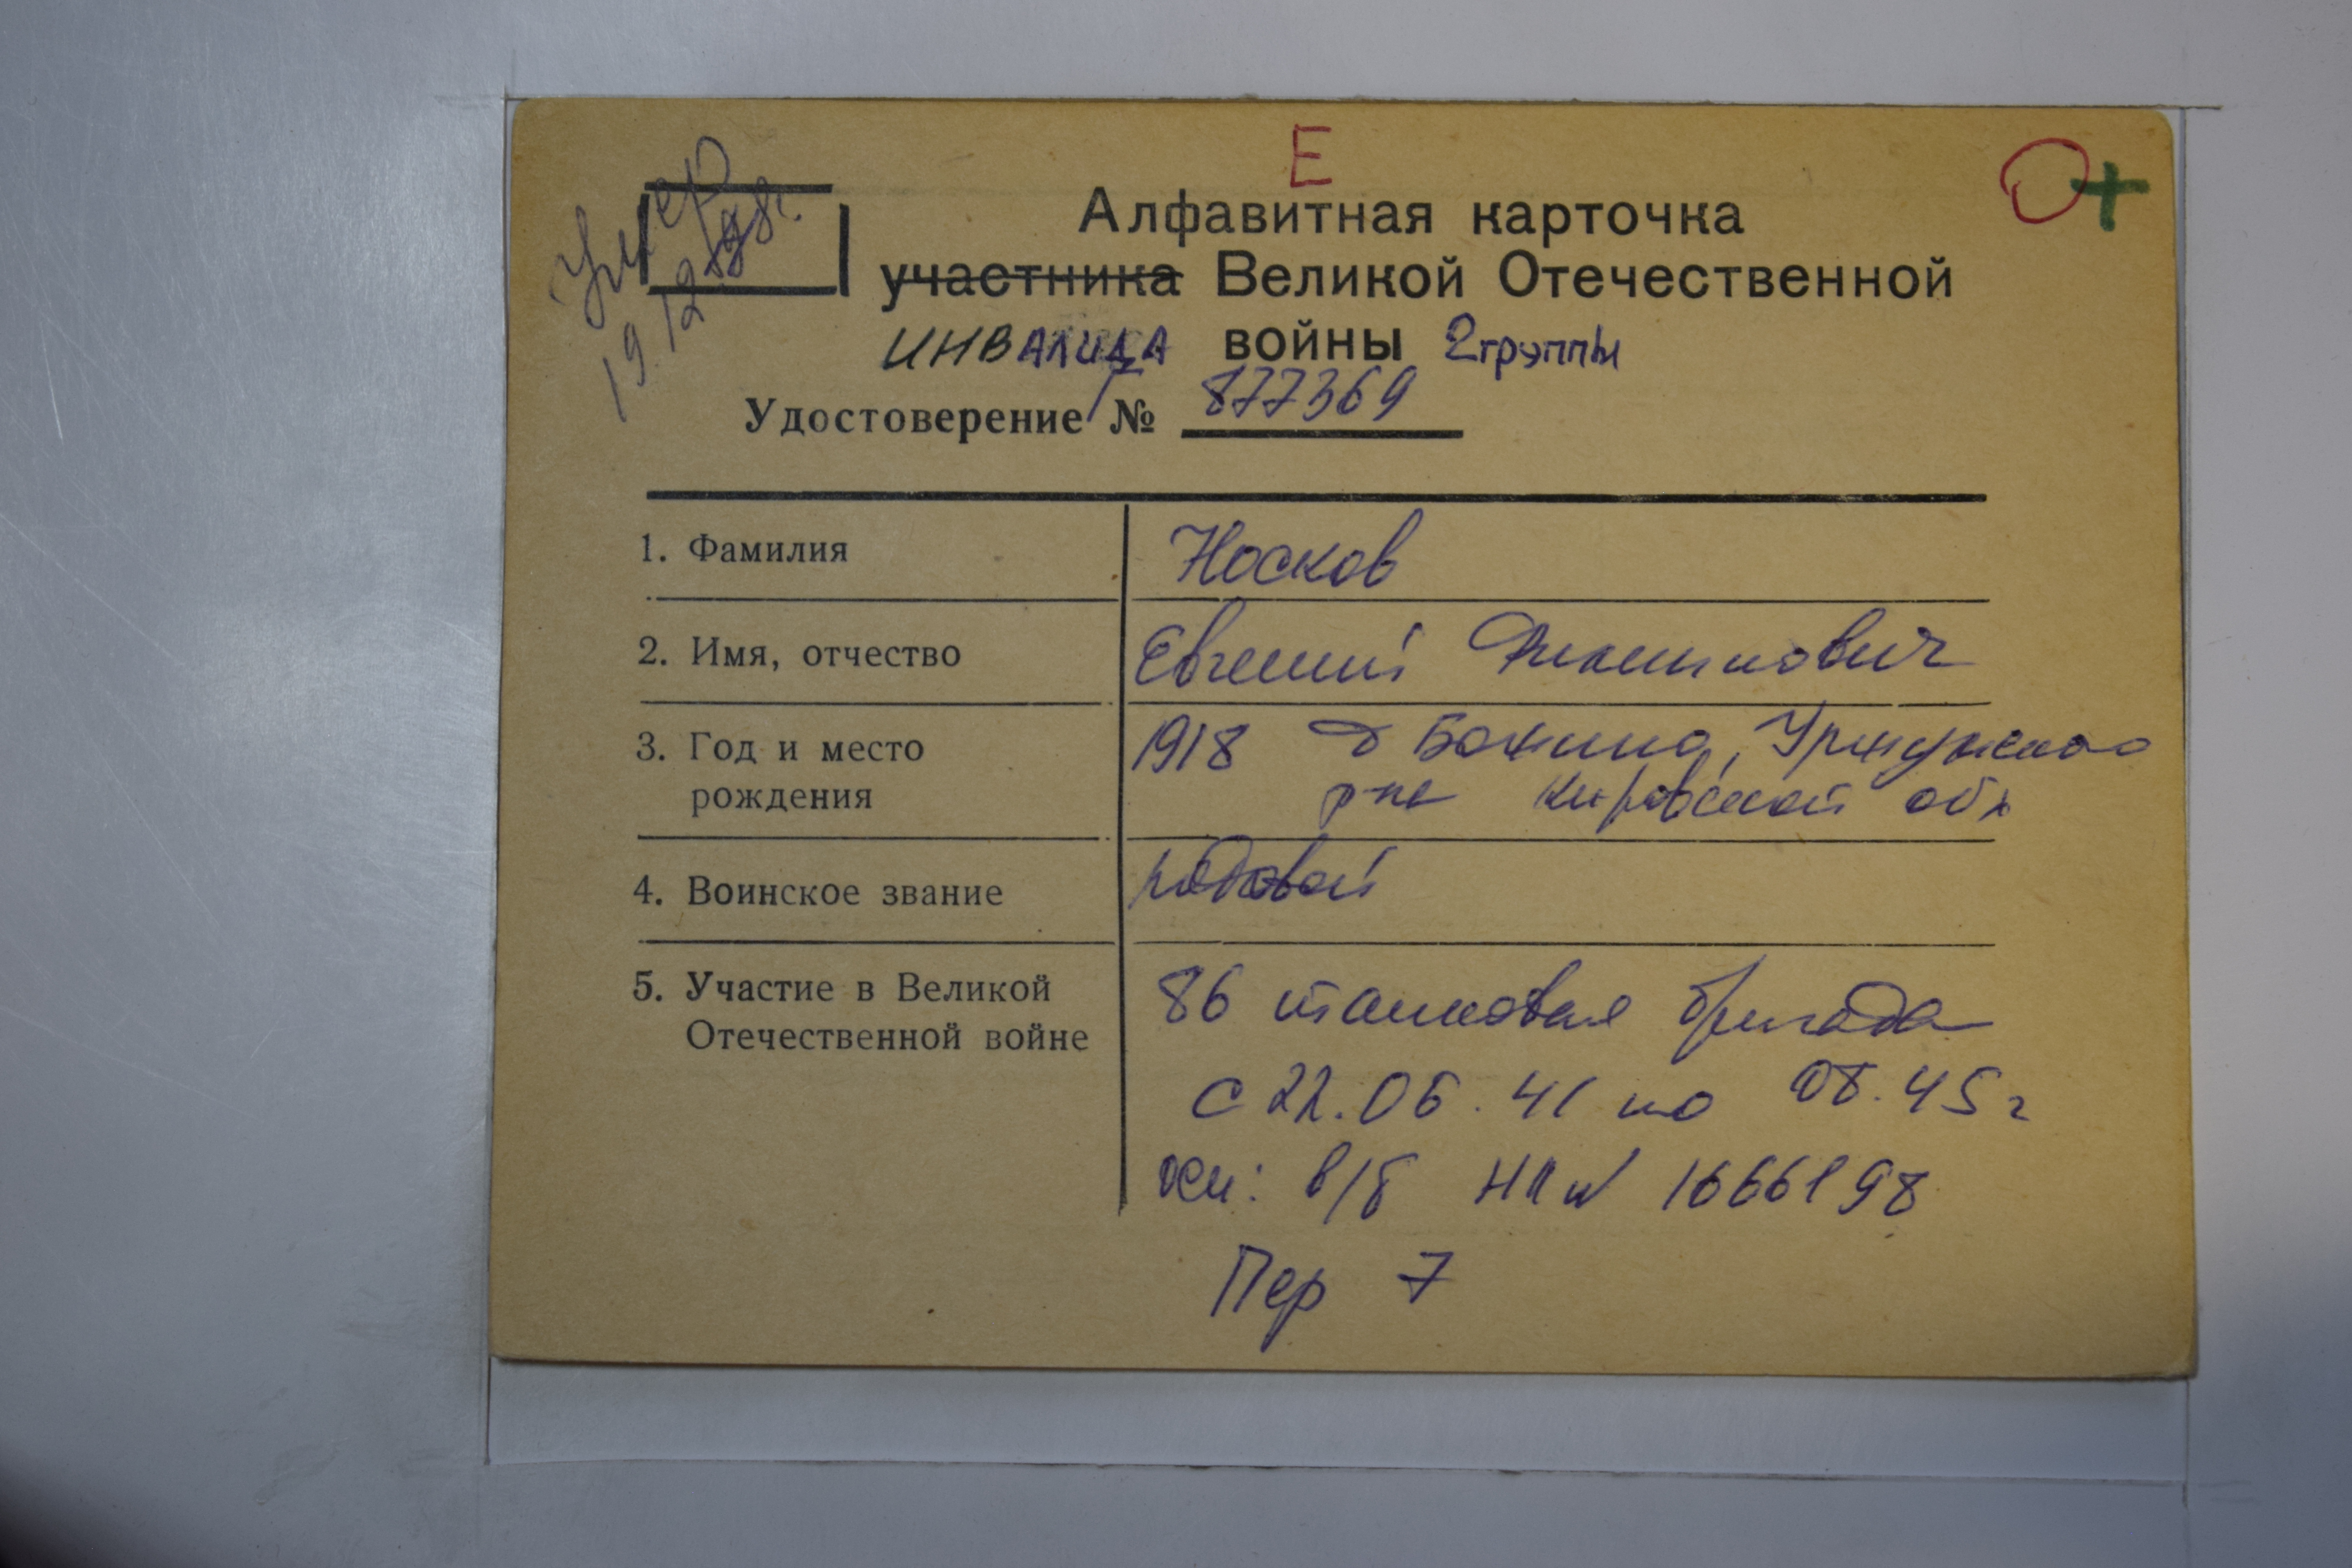 Е
О+
умер
19.12.88г.
Алфавитная карточка
участника Великой Отечественной
инвалида войны 2 группы
Удостоверение № 877369
1. Фамилия Носков
2. Имя, отчество Евгений
3. Год и место рождения 1918 д Уржумского
р-на Кировской обл
4. Воинское звание рядовой
5. Участие в Великой Отечественной войне 86 танковая бригада
с 22.06.41 по 08.45г
осн: в/б НП № 1666198
Пер 7